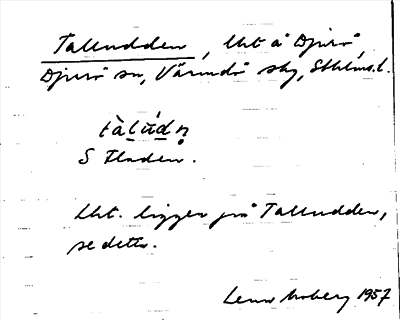 Talludden, lht å Djurö,
Djurö sn, Värmdö skg, Sthlms l.
tàlúdn̥
S Fladen.
Lht. ligger på Talludden,
se detta.
Moberg 1957